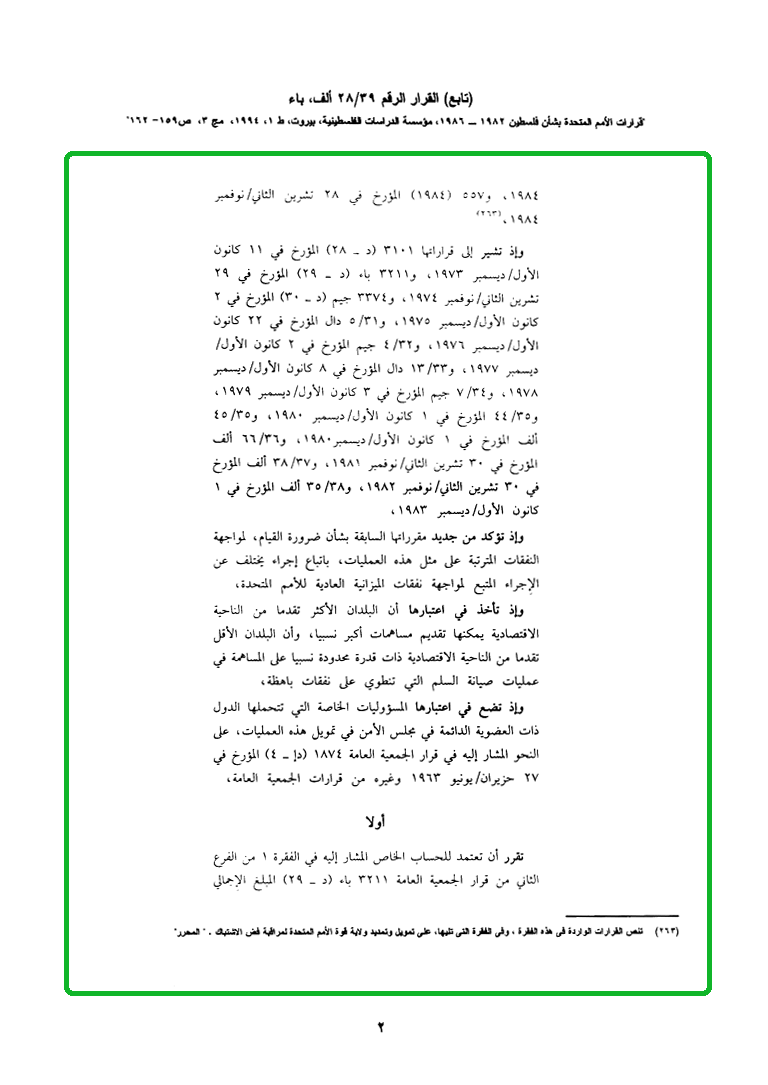 (تابع) القرار الرقم ٢٨/٣٩ ألف، باء
"قرارات الأمم المتحدة بشأن فلسطين ١٩٨٢ ــ ١٩٨٦، مؤسسة الدراسات الفلسطينية، بيروت، ط ١، ١٩٩٤، مج ٣، ص١٥٩- ١٦٢"
١٩٨٤، و٥٥٧ (١٩٨٤) المؤرخ في ٢٨ تشرين الثاني/نوفمبر
١٩٨٤،(٢٦٣)
وإذ تشير إلى قراراتها ٣١٠١ (د ــ ٢٨) المؤرخ في ١١ كانون
الأول/ديسمبر ١٩٧٣، و٣٢١١ باء (د ــ ٢٩) المؤرخ في ٢٩
تشرين الثاني/نوفمبر ١٩٧٤، و٣٣٧٤ جيم (د ــ ٣٠) المؤرخ في ٢
كانون الأول/ديسمبر ١٩٧٥، و٥/٣١ دال المؤرخ في ٢٢ كانون
الأول/ديسمبر ١٩٧٦، و٤/٣٢ جيم المؤرخ في ٢ كانون الأول/
ديسمبر ١٩٧٧، و١٣/٣٣ دال المؤرخ في ٨ كانون الأول/ديسمبر
١٩٧٨، و٧/٣٤ جيم المؤرخ في ٣ كانون الأول/ديسمبر ١٩٧٩،
و٤٤/٣٥ المؤرخ في ١ كانون الأول/ديسمبر ١٩٨٠، و٤٥/٣٥
ألف المؤرخ في ١ كانون الأول/ديسمبر١٩٨٠، و٦٦/٣٦ ألف
المؤرخ في ٣٠ تشرين الثاني/نوفمبر ١٩٨١، و٣٨/٣٧ ألف المؤرخ
في ٣٠ تشرين الثاني/نوفمبر ١٩٨٢، و٣٥/٣٨ ألف المؤرخ في ١
كانون الأول/ديسمبر ١٩٨٣،
وإذ تؤكد من جديد مقرراتها السابقة بشأن ضرورة القيام، لمواجهة
النفقات المترتبة على مثل هذه العمليات، باتباع إجراء يختلف عن
الإجراء المتبع لمواجهة نفقات الميزانية العادية للأمم المتحدة،
وإذ تأخذ في اعتبارها أن البلدان الأكثر تقدما من الناحية
الاقتصادية يمكنها تقديم مساهمات أكبر نسبيا، وأن البلدان الأقل
تقدما من الناحية الاقتصادية ذات قدرة محدودة نسبيا على المساهمة في
عمليات صيانة السلم التي تنطوي على نفقات باهظة،
وإذ تضع في اعتبارها المسؤوليات الخاصة التي تتحملها الدول
ذات العضوية الدائمة في مجلس الأمن في تمويل هذه العمليات، على
النحو المشار إليه في قرار الجمعية العامة ١٨٧٤ (دإ ــ ٤) المؤرخ في
٢٧ حزيران/يونيو ١٩٦٣ وغيره من قرارات الجمعية العامة،
أولا
تقرر أن تعتمد للحساب الخاص المشار إليه في الفقرة ١ من الفرع
الثاني من قرار الجمعية العامة ٣٢١١ باء (د ــ ٢٩) المبلغ الإجمالي
(٢٦٣) تنص القرارات الواردة في هذه الفقرة ، وفي الفقرة التي تليها، على تمويل وتمديد ولاية قوة الأمم المتحدة لمراقبة فض الاشتباك . " المحرر"
٢